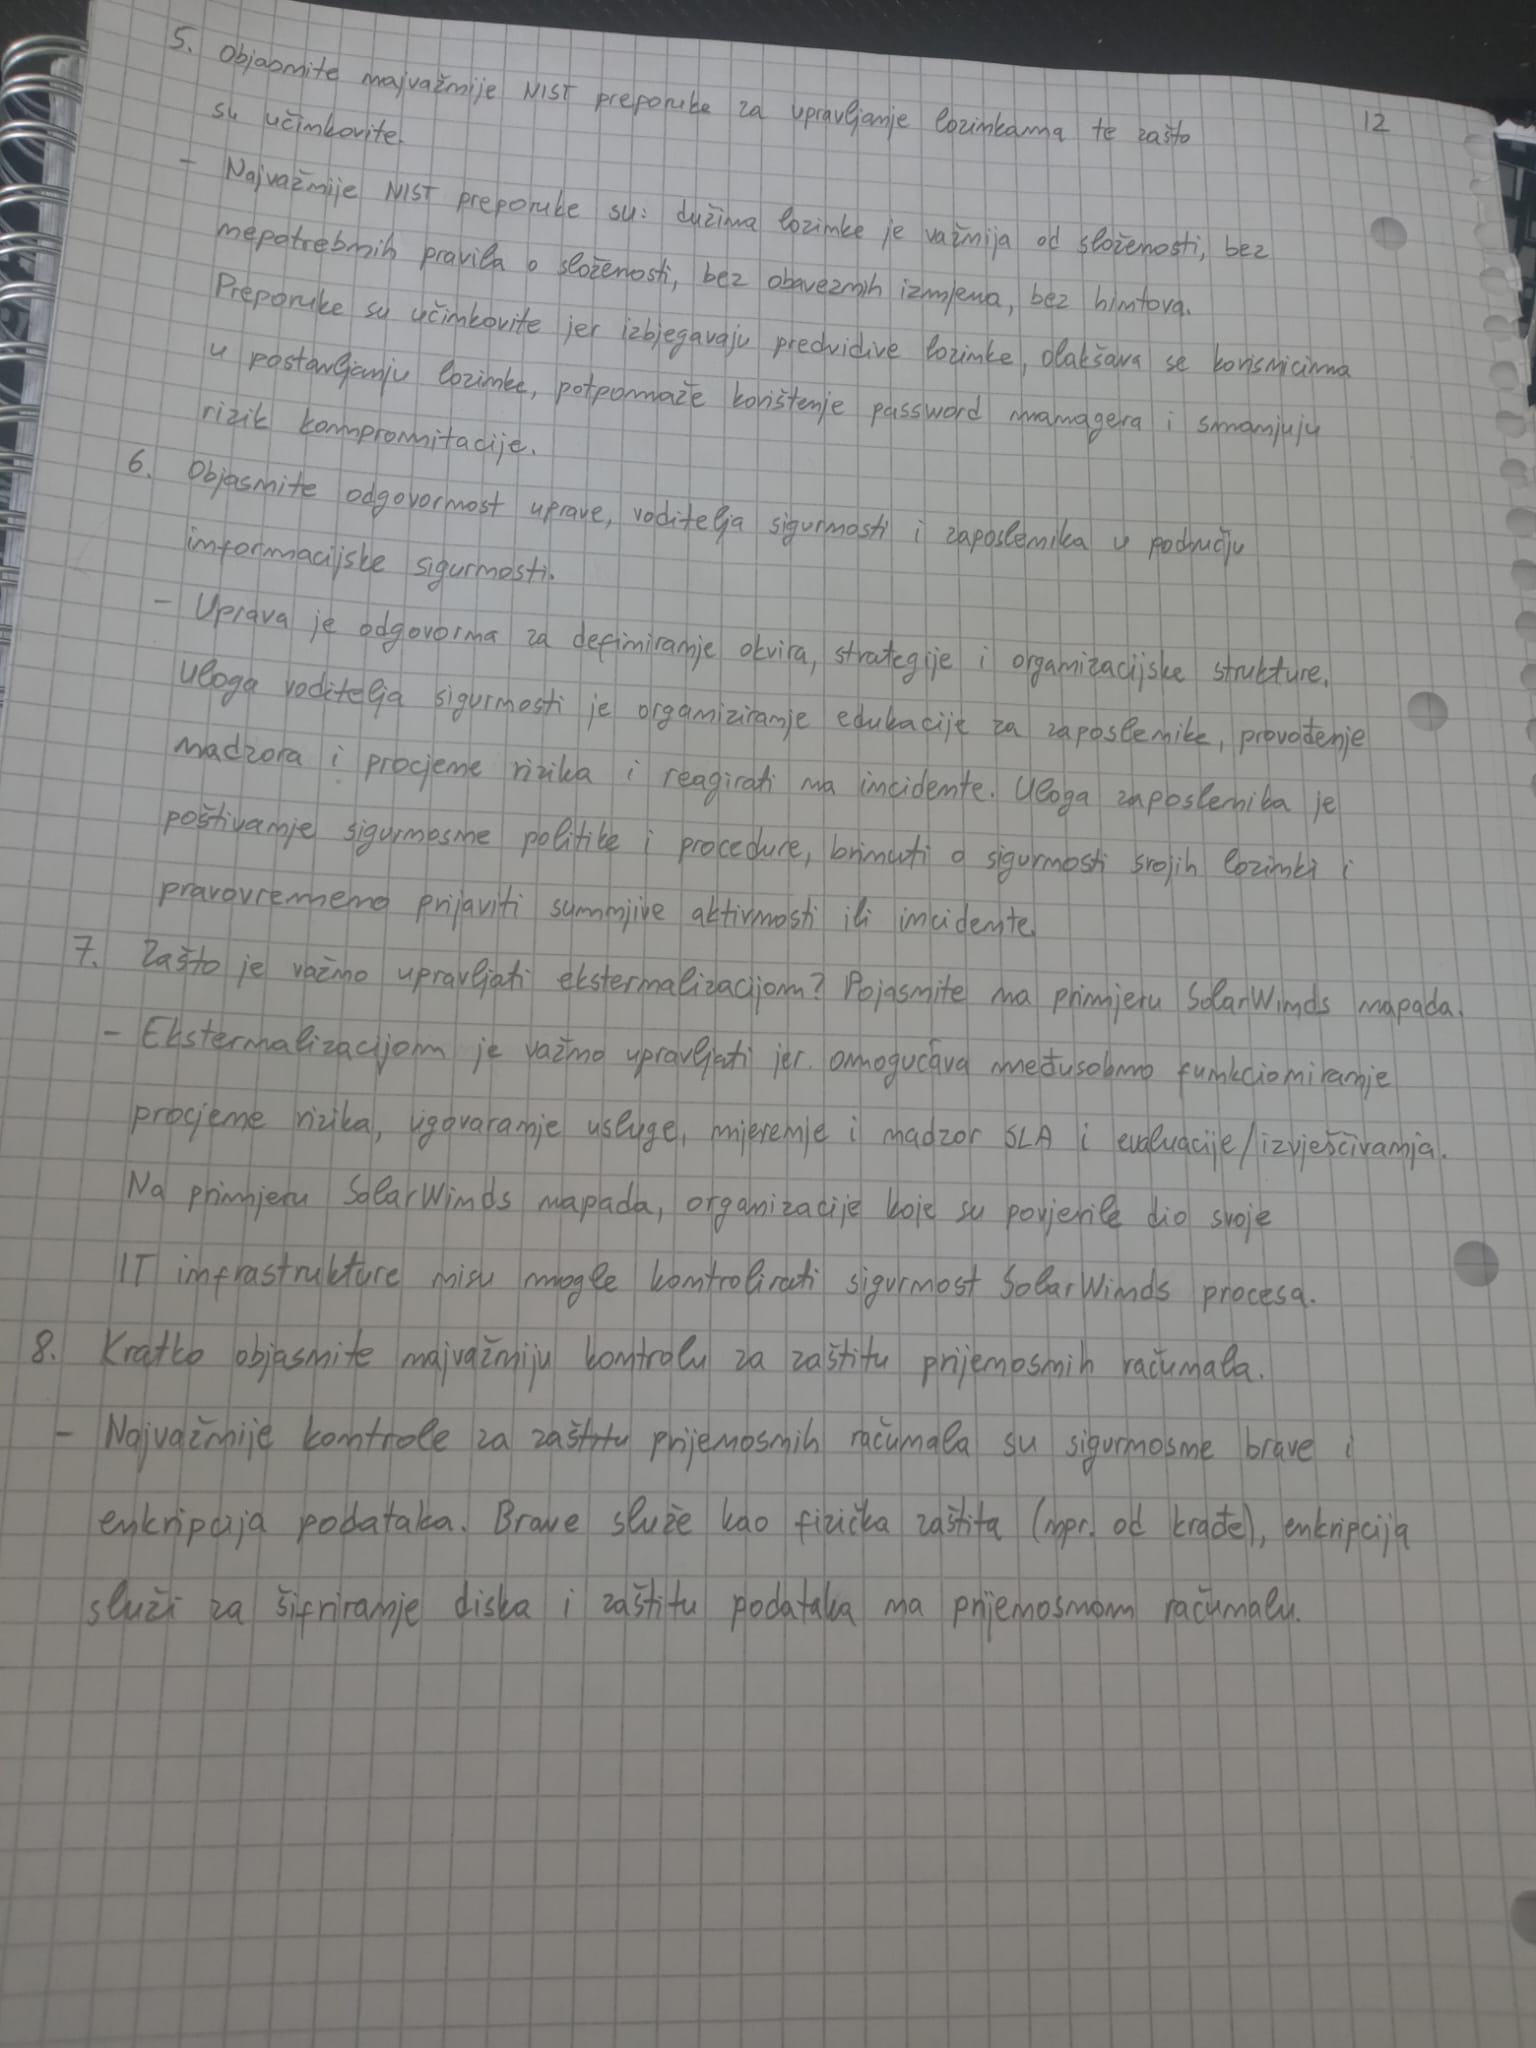 12
5. Objasnite najvažnije NIST preporuke za upravljanje lozinkama te zašto
su učinkovite.
- Najvažnije NIST preporuke su: dužina lozinke je važnija od složenosti, bez
nepotrebnih pravila o složenosti, bez obaveznih izmjena, bez hintova.
Preporuke su učinkovite jer izbjegavaju predvidive lozinke, olakšava se korisnicima
u postavljanju lozinke, potpomaže korištenje password managera i smanjuju
rizik kompromitacije.
6. Objasnite odgovornost uprave, voditelja sigurnosti i zaposlenika u području
informacijske sigurnosti.
- Uprava je odgovorna za definiranje okvira, strategije i organizacijske strukture.
Uloga voditelja sigurnosti je organiziranje edukacije za zaposlenike, provođenje
nadzora i procjene rizika i reagirati na incidente. Uloga zaposlenika je
poštivanje sigurnosne politike i procedure, brinuti o sigurnosti svojih lozinki i
pravovremeno prijaviti sumnjive aktivnosti ili incidente.
7. Zašto je važno upravljati eksternalizacijom? Pojasnite na primjeru SolarWinds napada.
- Eksternalizacijom je važno upravljati jer omogućava međusobno funkcioniranje
procjene rizika, ugovaranje usluge, mjerenje i nadzor SLA i evaluacije/izvješćivanja.
Na primjeru SolarWinds napada, organizacije koje su povjerile dio svoje
IT infrastrukture nisu mogle kontrolirati sigurnost SolarWinds procesa.
8. Kratko objasnite najvažniju kontrolu za zaštitu prijenosnih računala.
- Najvažnije kontrole za zaštitu prijenosnih računala su sigurnosne brave i
enkripcija podataka. Brave služe kao fizička zaštita (npr. od krađe), enkripcija
služi za šifriranje diska i zaštitu podataka na prijenosnom računalu.